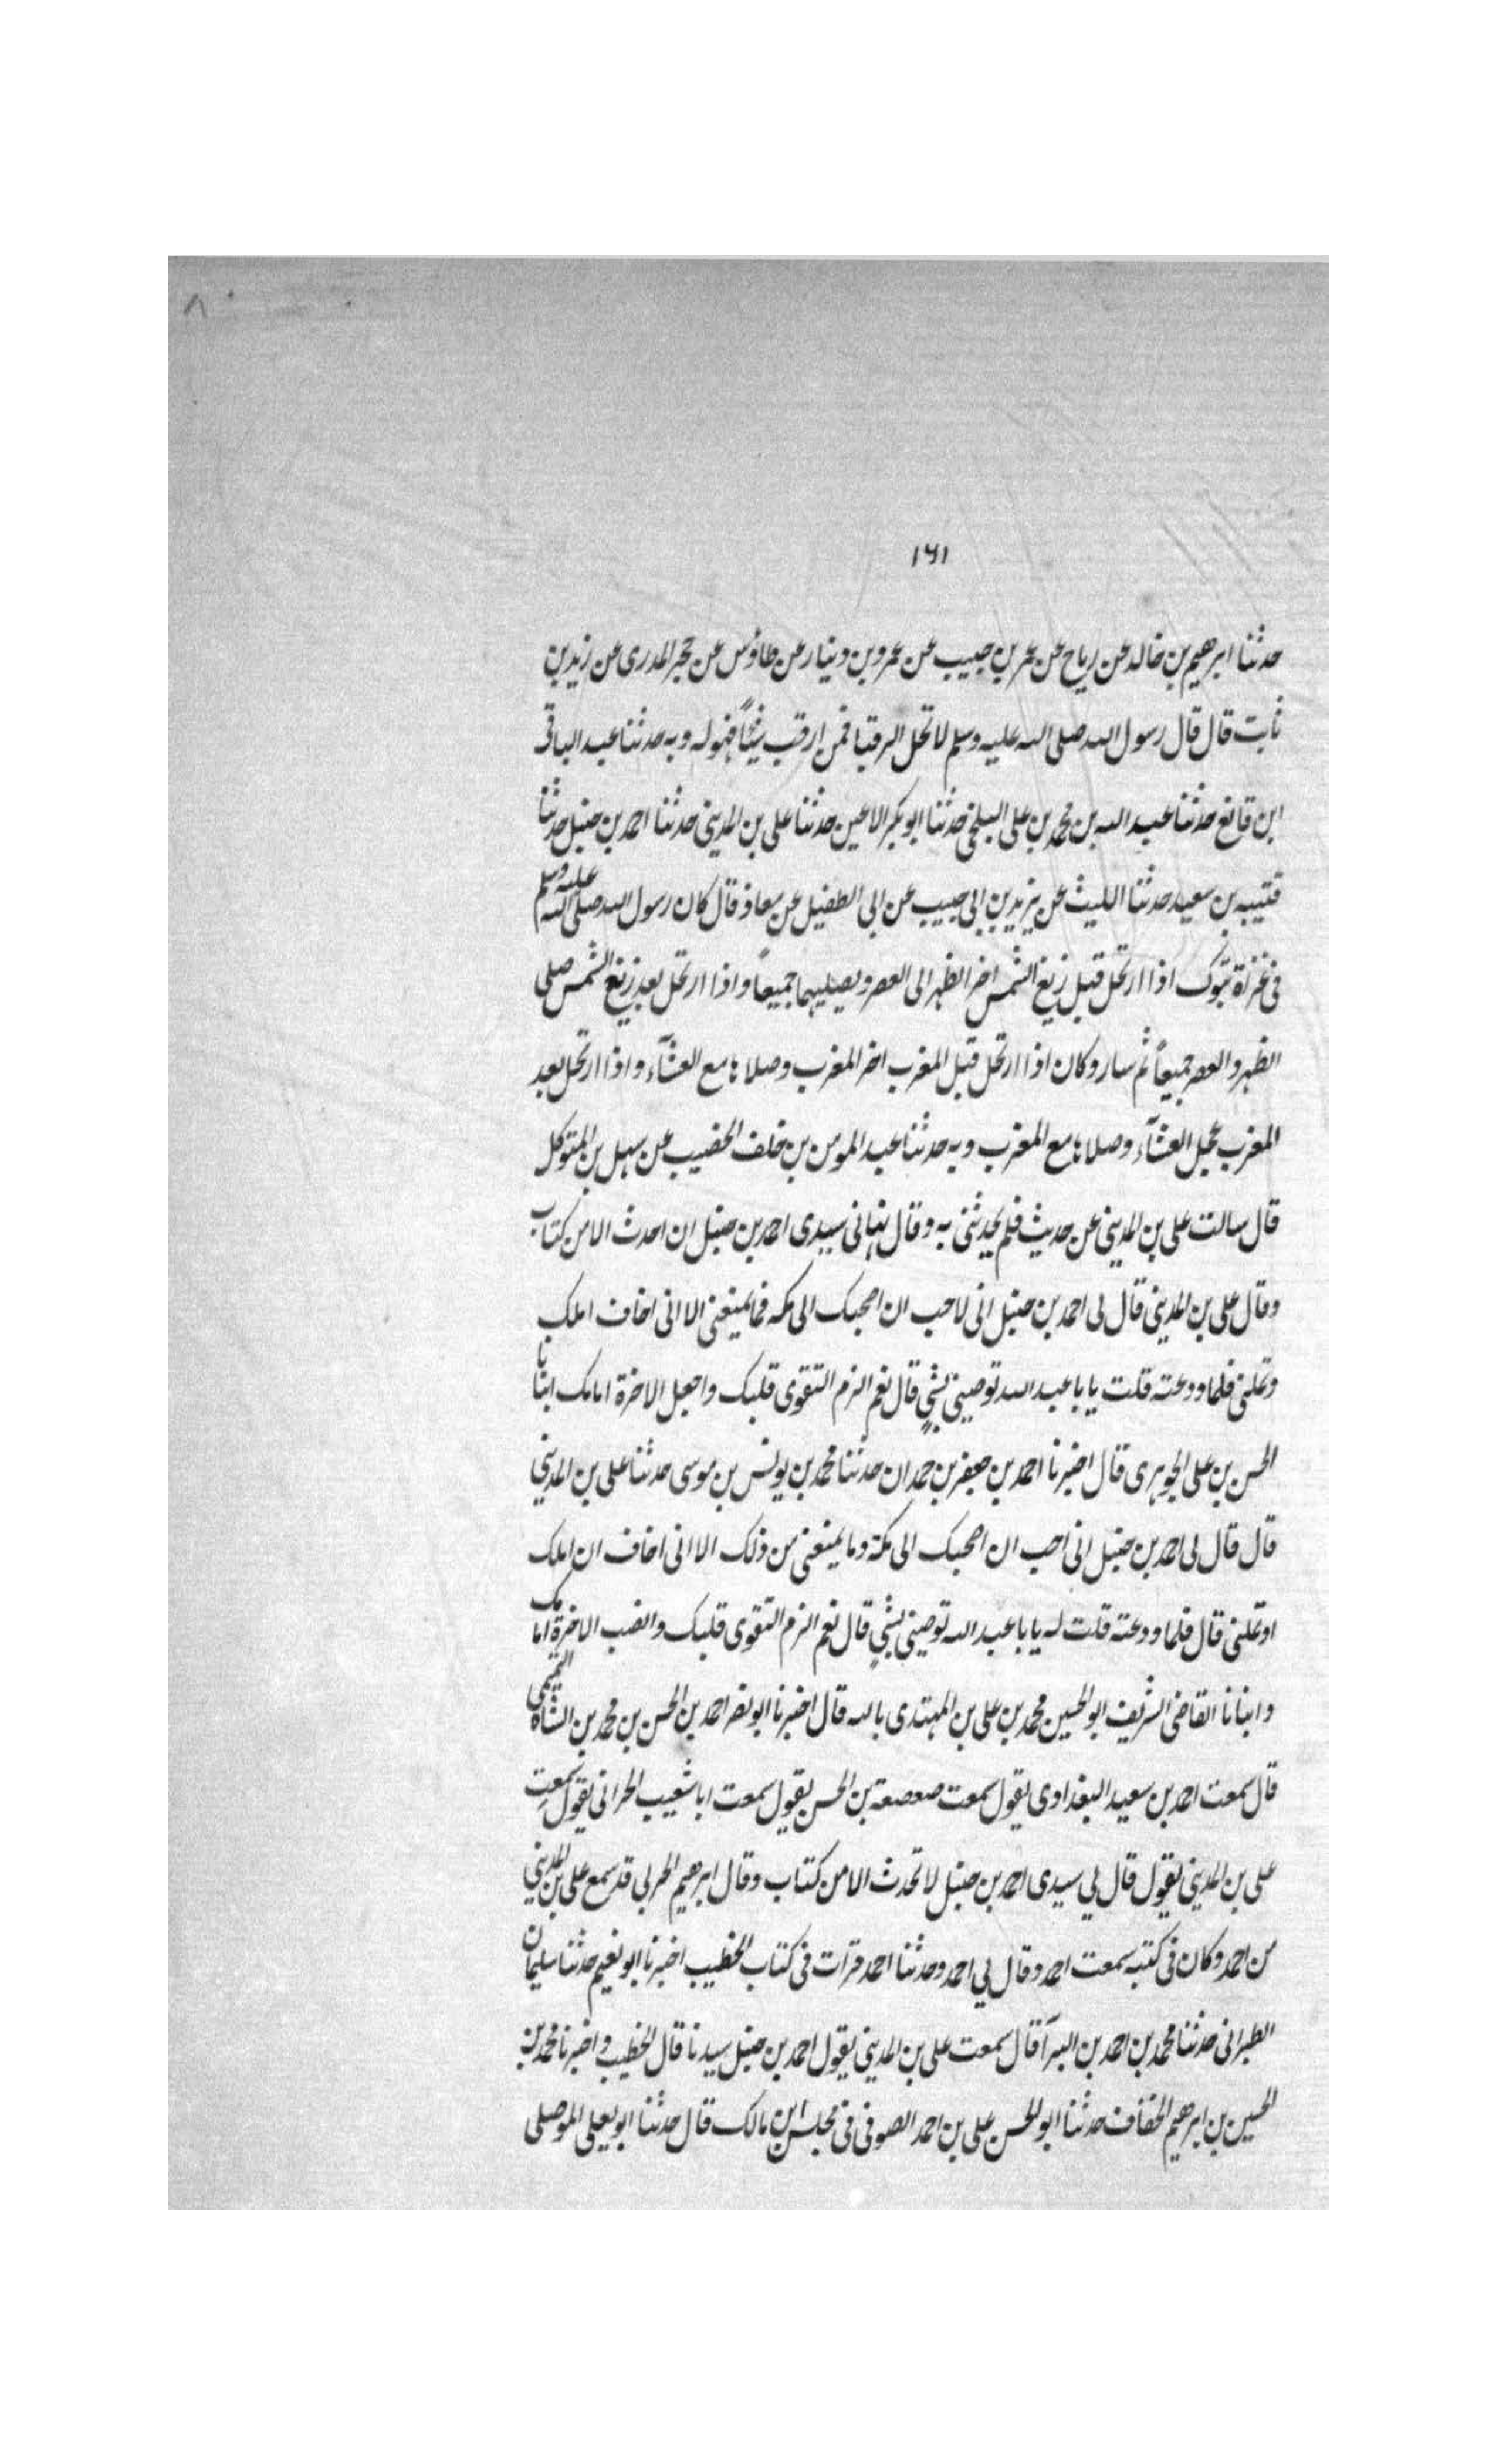 ٨
١٦١
حدثنا ابرهيم بن خالد عن رياح عن عمر بن حبيب عن عمرو بن دينار عن طاؤس عن حجر المدرى عن زيد بن
ثابت قال قال رسول الله صلى الله عليه وسلم لا تحل الرقبا فمن ارقب شيئاً فهو له وبه حدثنا عبد الباقى
ابن قانع حدثنا عبد الله بن محمد بن على البلخى حدثنا ابو بكر الاعين حدثنا على بن المدينى حدثنا احمد بن حنبل حدثنا
قتيبه بن سعيد حدثنا الليث عن يزيد بن ابى حبيب عن ابى الطفيل عن معاذ قال كان رسول الله صلى الله عليه وسلم
فى غزوة تبوك اذا ارتحل قبل زيغ الشمس اخر الظهر الى العصر ويصليهما جميعاً واذا ارتحل بعد زيغ الشمس صلى
الظهر والعصر جميعاً ثم سار وكان اذا ارتحل قبل المغرب اخر المغرب وصلاها مع العشآء واذا ارتحل بعد
المغرب عجل العشآء وصلاها مع المغرب وبه حدثنا عبد المومن بن خلف الخصيب عن سهل بن المتوكل
قال سالت على بن المدينى عن حديث فلم يحدثنى به وقال نهانى سيدى احمد بن حنبل ان احدث الا من كتاب
وقال على بن المدينى قال لى احمد بن حنبل انى لاحب ان اصحبك الى مكه فما يمنعنى الا انى اخاف املك
وتملنى فلما ودعته قلت يا با عبد الله توصينى بشىٍ قال نعم الزم التقوى قلبك واجعل الاخرة امامك انبانا
الحسن بن على الجوهرى قال اخبرنا احمد بن جعفر بن حمدان حدثنا محمد بن يونس بن موسى حدثنا على بن المدينى
قال قال لى احمد بن حنبل انى احب ان اصحبك الى مكة وما يمنعنى من ذلك الا انى اخاف ان املك
او تملنى قال فلما ودعته قلت له يا با عبد الله توصينى بشىٍ قال نعم الزم التقوى قلبك وانصب الاخرة امامك
وانبانا القاضى الشريف ابو الحسين محمد بن على بن المهتدى بالله قال اخبرنا ابو نصر احمد بن الحسن بن محمد بن الشاه التميمى
قال سمعت احمد بن سعيد البغدادى يقول سمعت صعصعة بن الحسن يقول سمعت ابا شعيب الحرانى يقول سمعت
على بن المدينى يقول قال لي سيدى احمد بن حنبل لا تحدث الا من كتاب وقال ابرهيم الحربى قد سمع على بن المدينى
من احمد وكان فى كتبه سمعت احمد وقال لي احمد وحدثنا احمد قرات فى كتاب الخطيب اخبرنا ابو نعيم حدثنا سليمان
الطبرانى حدثنا محمد بن احمد بن البرآ قال سمعت على بن المدينى يقول احمد بن حنبل سيدنا قال الخطيب واخبرنا محمد بن
الحسين بن ابرهيم الخفاف حدثنا ابو الحسن على بن احمد الصوفى فى مجلس ابن مالك قال حدثنا ابو يعلى الموصلى